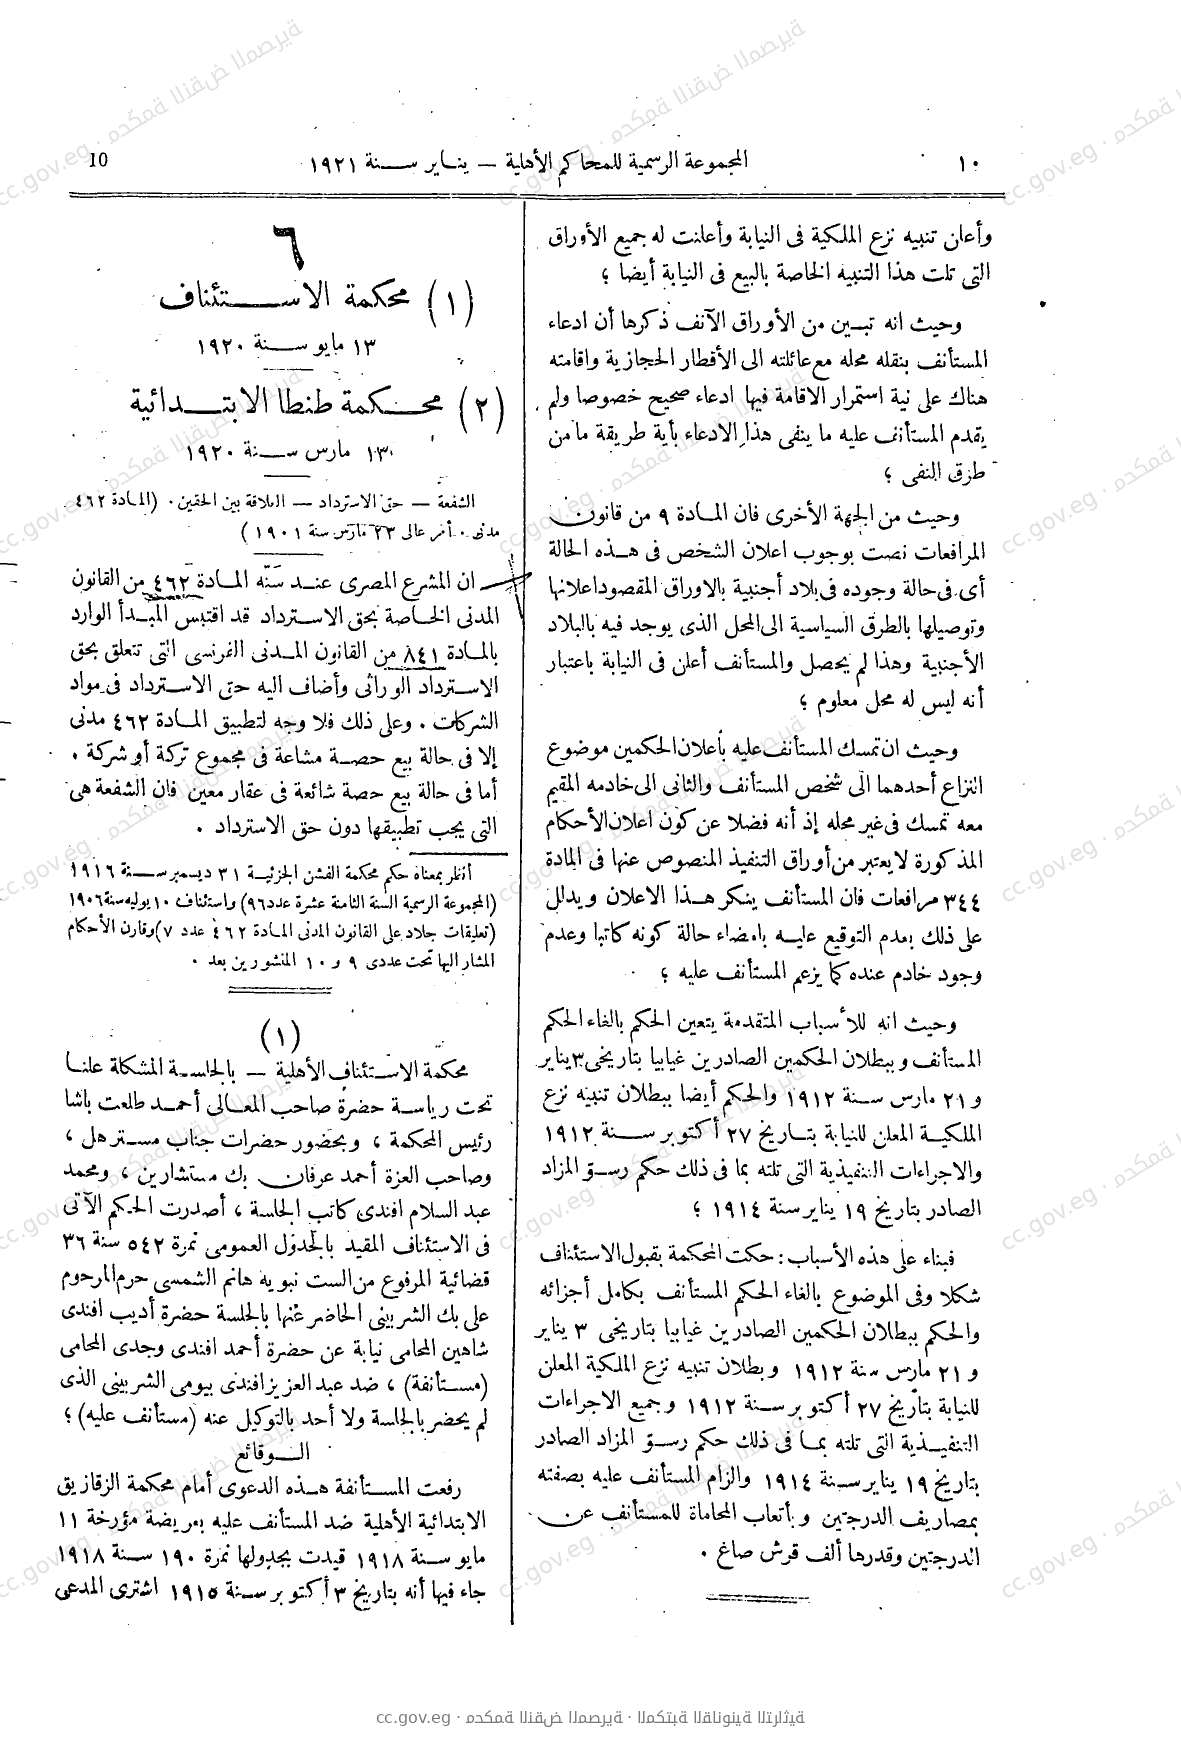 ١٠ المجموعة الرسمية للمحاكم الأهلية — يناير سنة ١٩٢١ 10
وأعلن تنبيه نزع الملكية فى النيابة وأعلنت له جميع الأوراق
التى تلت هذا التنبيه الخاصة بالبيع فى النيابة أيضا ؛
وحيث انه تبين من الأوراق الآنف ذكرها أن ادعاء
المستأنف بنقله محله مع عائلته الى الأقطار الحجازية واقامته
هناك على نية استمرار الاقامة فيها ادعاء صحيح خصوصا ولم
يقدم المستأنف عليه ما ينفى هذا الادعاء بأية طريقة ما من
طرق النفى ؛
وحيث من الجهة الأخرى فان المادة ٩ من قانون
المرافعات نصت بوجوب اعلان الشخص فى هذه الحالة
أى فى حالة وجوده فى بلاد أجنبية بالاوراق المقصود اعلانها
وتوصيلها بالطرق السياسية الى المحل الذى يوجد فيه بالبلاد
الأجنبية وهذا لم يحصل والمستأنف أعلن فى النيابة باعتبار
أنه ليس له محل معلوم ؛
وحيث ان تمسك المستأنف عليه بأعلان الحكمين موضوع
النزاع أحدهما الى شخص المستأنف والثانى الى خادمه المقيم
معه تمسك فى غير محله إذ أنه فضلا عن كون اعلان الأحكام
المذكورة لا يعتبر من أوراق التنفيذ المنصوص عنها فى المادة
٣٤٤ مرافعات فان المستأنف ينكر هذا الاعلان ويدلل
على ذلك بعدم التوقيع عليه بامضاء حالة كونه كاتبا وعدم
وجود خادم عنده كما يزعم المستأنف عليه ؛
وحيث انه للأسباب المتقدمة يتعين الحكم بالغاء الحكم
المستأنف وببطلان الحكمين الصادرين غيابيا بتاريخى ٣ يناير
و ٢١ مارس سنة ١٩١٢ والحكم أيضا ببطلان تنبيه نزع
الملكية المعلن للنيابة بتاريخ ٢٧ أكتوبر سنة ١٩١٢
والاجراءات التنفيذية التى تلته بما فى ذلك حكم رسو المزاد
الصادر بتاريخ ١٩ يناير سنة ١٩١٤ ؛
فبناء على هذه الأسباب : حكمت المحكمة بقبول الاستئناف
شكلا وفى الموضوع بالغاء الحكم المستأنف بكامل أجزائه
والحكم ببطلان الحكمين الصادرين غيابيا بتاريخى ٣ يناير
و ٢١ مارس سنة ١٩١٢ وبطلان تنبيه نزع الملكية المعلن
للنيابة بتاريخ ٢٧ أكتوبر سنة ١٩١٢ وجميع الاجراءات
التنفيذية التى تلته بما فى ذلك حكم رسو المزاد الصادر
بتاريخ ١٩ يناير سنة ١٩١٤ والزام المستأنف عليه بصفته
بمصاريف الدرجتين وبأتعاب المحاماة للمستأنف عن
الدرجتين وقدرها ألف قرش صاغ .
٦
(١) محكمة الاستئناف
١٣ مايو سنة ١٩٢٠
(٢) محكمة طنطا الابتدائية
١٣ مارس سنة ١٩٢٠
الشفعة — حق الاسترداد — العلاقة بين الحقين . (المادة ٤٦٢
مدنى . أمر عالى ٢٣ مارس سنة ١٩٠١)
— ان المشرع المصرى عند سنه المادة ٤٦٢ من القانون
المدنى الخاصة بحق الاسترداد قد اقتبس المبدأ الوارد
بالمادة ٨٤١ من القانون المدنى الفرنسى التى تتعلق بحق
الاسترداد الوراثى وأضاف اليه حق الاسترداد فى مواد
الشركات . وعلى ذلك فلا وجه لتطبيق المادة ٤٦٢ مدنى
إلا فى حالة بيع حصة مشاعة فى مجموع تركة أو شركة .
أما فى حالة بيع حصة شائعة فى عقار معين فان الشفعة هى
التى يجب تطبيقها دون حق الاسترداد .
أنظر بمعناه حكم محكمة الفشن الجزئية ٣١ ديسمبر سنة ١٩١٦
(المجموعة الرسمية السنة الثامنة عشرة عدد ٩٦) واستئناف ١٠ يوليه سنة ١٩٠٦
(تعليقات جلاد على القانون المدنى المادة ٤٦٢ عدد ٧) وقارن الأحكام
المشار اليها تحت عددى ٩ و ١٠ المنشورين بعد .
(١)
محكمة الاستئناف الأهلية — بالجلسة المشكلة علنا
تحت رياسة حضرة صاحب المعالى أحمد طلعت باشا
رئيس المحكمة ، وبحضور حضرات جناب مستر هل ،
وصاحب العزة أحمد عرفان بك مستشارين ، ومحمد
عبد السلام افندى كاتب الجلسة ، أصدرت الحكم الآتى
فى الاستئناف المقيد بالجدول العمومى نمرة ٥٤٢ سنة ٣٦
قضائية المرفوع من الست نبويه هانم الشمسى حرم المرحوم
على بك الشربينى الحاضر عنها بالجلسة حضرة أديب افندى
شاهين المحامى نيابة عن حضرة أحمد افندى وجدى المحامى
(مستأنفة) ، ضد عبد العزيز افندى بيومى الشربينى الذى
لم يحضر بالجلسة ولا أحد بالتوكيل عنه (مستأنف عليه) ؛
الوقائع
رفعت المستأنفة هذه الدعوى أمام محكمة الزقازيق
الابتدائية الأهلية ضد المستأنف عليه بعريضة مؤرخة ١١
مايو سنة ١٩١٨ قيدت بجدولها نمرة ١٩٠ سنة ١٩١٨
جاء فيها أنه بتاريخ ٣ أكتوبر سنة ١٩١٥ اشترى المدعى
cc.gov.eg · محكمة النقض المصرية · المكتبة القانونية التراثية